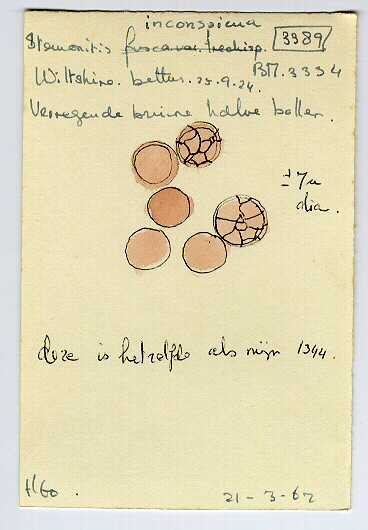 inconspicua
Stemonitis fusca var. 3389
Wiltshire. bettus. 25.9.24. BM. 3334
Verregende bruine halve boller.
± 7µ
dia.
Deze is hetzelfde als mijn 1344.
21-3-62